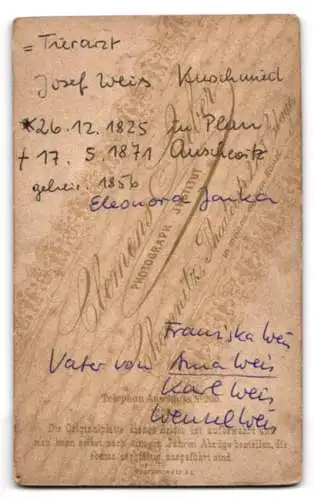 = Tierarzt
Josef Weis Kuschmied
*26.12.1825 in Plan
+ 17. 5. 1871 Auschwitz
geheir. 1856
Eleonora Janka
Clemens
PHOTOGRAPH. INSTITUT
Chemnitz, Theaterstr.
Franziska Weis
Vater von Anna Weis
Karl Weis
Wenzel Weis
Telephon Anschluss
Die Originalplatte dieses Bildes ist aufbewahrt und
man kann selbst nach einigen Jahren Abzüge bestellen, die
ebenso sorgfältig ausgeführt sind.